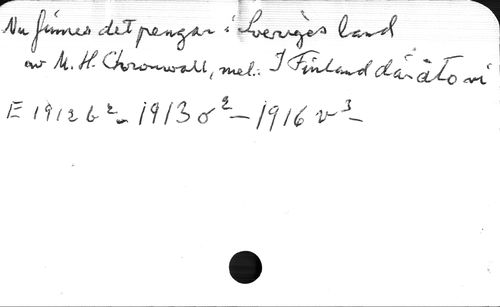 Nu finnes det pengar i Sveriges land
av M. H. Chronwall, mel.: I Finland där åto vi
E 1912 b² - 1913 o² - 1916 v³ -